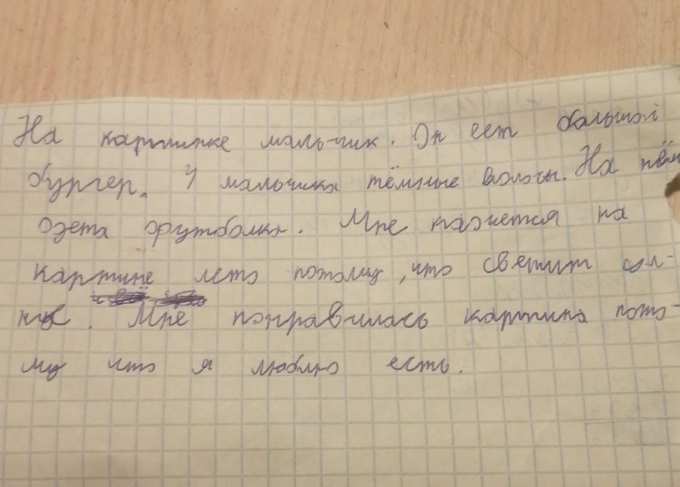 На картинке мальчик. Он ест большой
бургер. У мальчика тёмные волосы. На нём
одета футболка. Мне кажется на
картине лето потому, что светит сол-
нце. Мне понравилась картина пото-
му что я люблю есть.